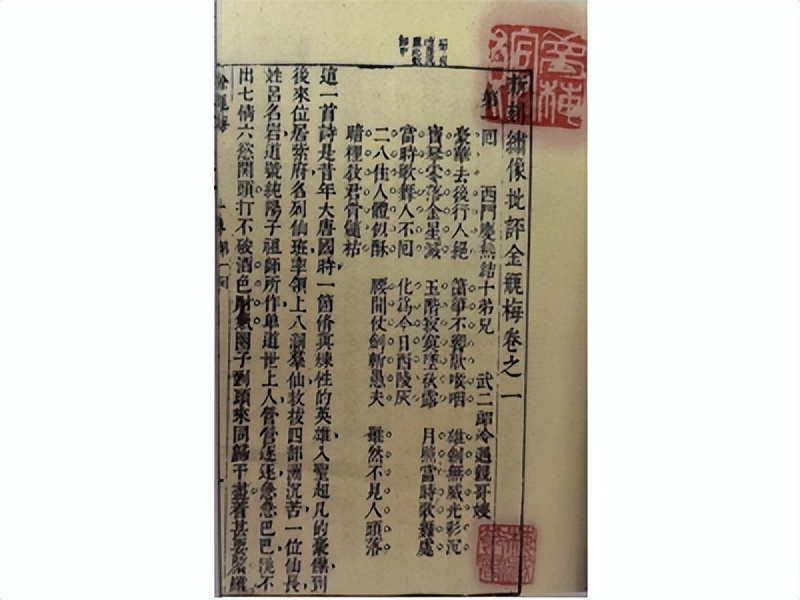 新刻繡像批評金瓶梅卷之一
第一回 西門慶熱結十弟兄 武二郎冷遇親哥嫂
豪華去後行人絕 簫箏不響歌喉咽 雄劍無威光彩沉
寶琴零落金星滅 玉階寂寞墜秋露 月照當時歌舞處
當時歌舞人不回 化爲今日西陵灰
二八佳人體似酥 腰間仗劍斬愚夫 雖然不見人頭落
暗裡教君骨髓枯
這一首詩是昔年大唐國時一箇脩真煉性的英雄入聖超凡的豪傑到
後來位居紫府名列仙班率領上八洞羣仙救拔四部洲沉苦一位仙長
姓呂名岩道號純陽子祖師所作單道世上人營營逐逐急急巴巴跳不
出七情六慾関頭打不破酒色財氣圈子到頭來同歸于盡著甚要緊雖
金瓶梅 一卷第一回